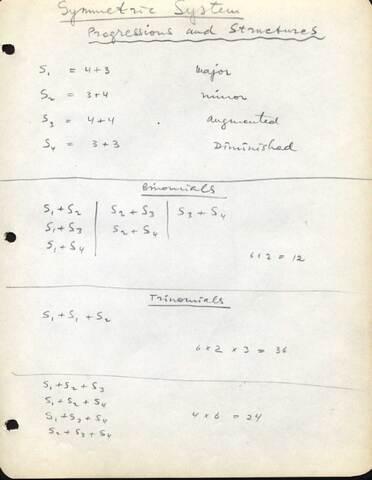 Symmetric System
Progressions and Structures
S1 = 4+3 Major
S2 = 3+4 minor
S3 = 4+4 Augmented
S4 = 3+3 Diminished
Binomials
S1+S2 S2+S3 S3+S4
S1+S3 S2+S4
S1+S4
6×2 = 12
Trinomials
S1+S1+S2
6×2×3 = 36
S1+S2+S3
S1+S2+S4
S1+S3+S4 4×6 = 24
S2+S3+S4